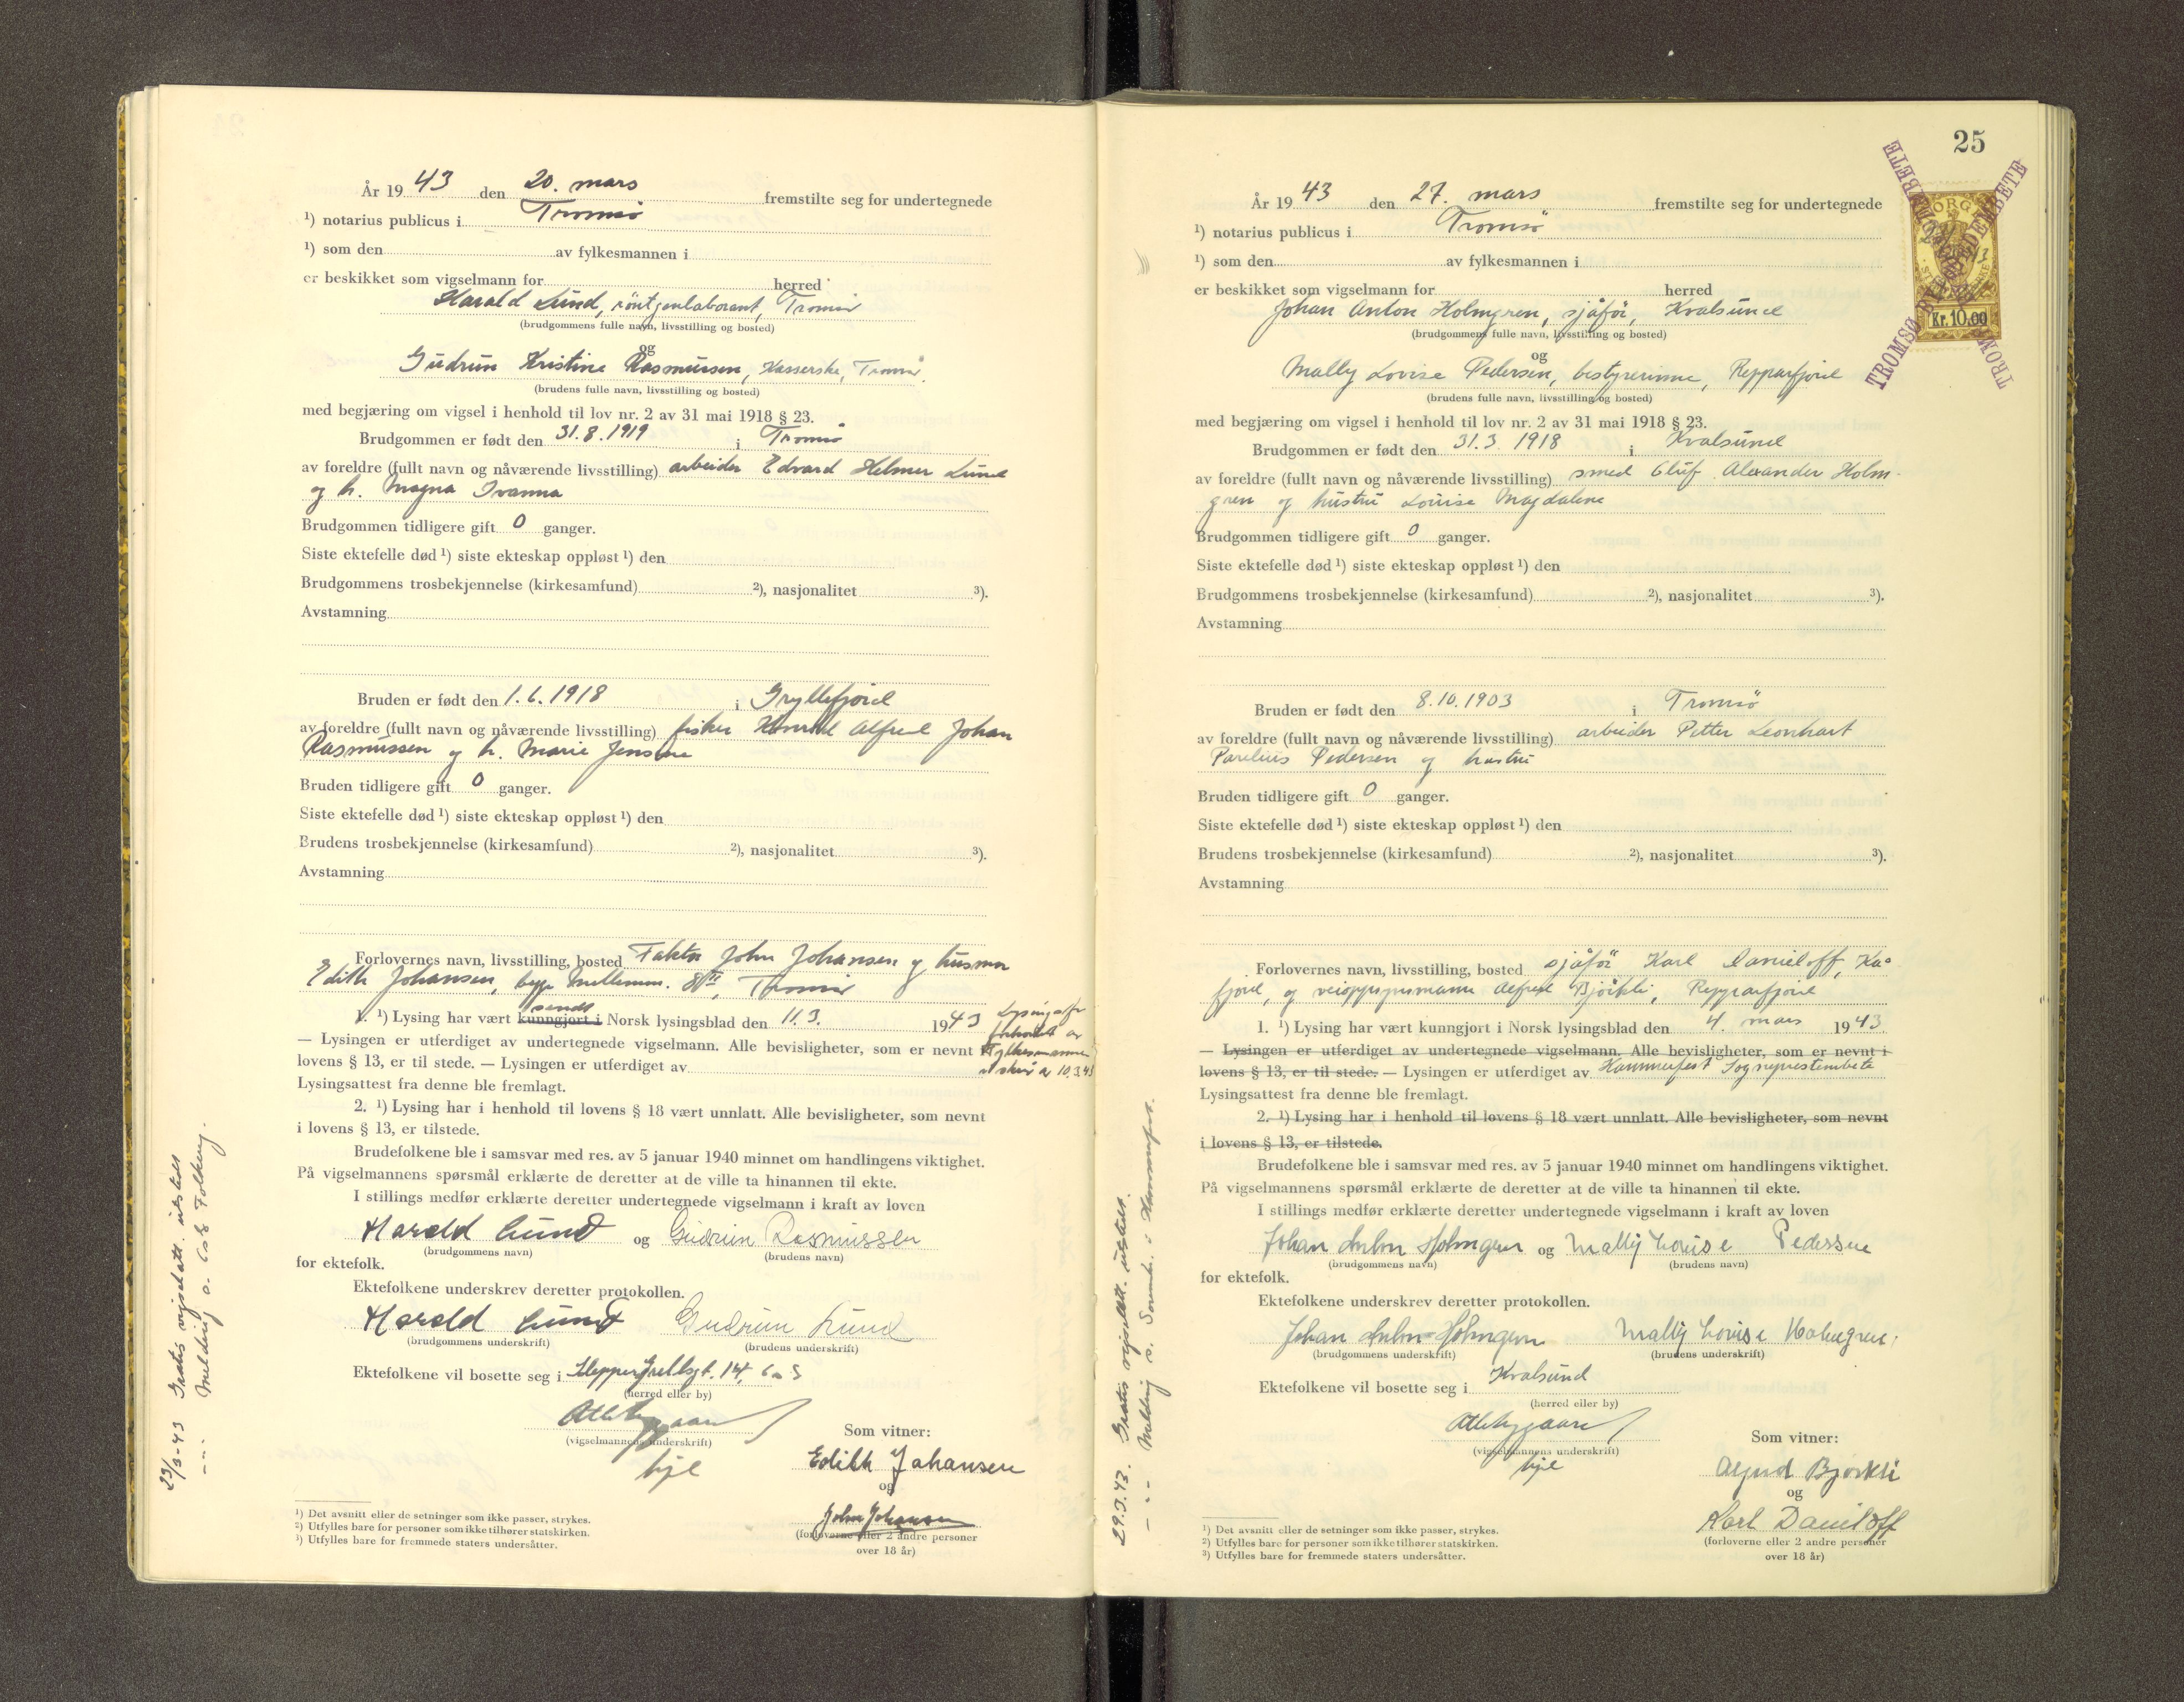 År 19 43 den 20. mars fremstilte seg for undertegnede
1) notarius publicus i Tromsö
1) som den av fylkesmannen i
er beskikket som vigselmann for herred
Harald Lund, röntgenlaborant, Tromsö
(brudgommens fulle navn, livsstilling og bosted)
og
Gudrun Kristine Rasmussen, Kasserske, Tromsö
(brudens fulle navn, livsstilling og bosted)
med begjæring om vigsel i henhold til lov nr. 2 av 31 mai 1918 § 23.
Brudgommen er født den 31.8.1919 i Tromsö
av foreldre (fullt navn og nåværende livsstilling) arbeider Edvard Helmer Lund
og h. Magna Ivanna
Brudgommen tidligere gift 0 ganger.
Siste ektefelle død 1) siste ekteskap oppløst 1) den
Brudgommens trosbekjennelse (kirkesamfund) 2), nasjonalitet 3).
Avstamning
Bruden er født den 1.6.1918 i Gryllefjord
av foreldre (fullt navn og nåværende livsstilling) fisker Alfred Johan
Rasmussen og h. Marie Jensine
Bruden tidligere gift 0 ganger.
Siste ektefelle død 1) siste ekteskap oppløst 1) den
Brudens trosbekjennelse (kirkesamfund) 2), nasjonalitet 3).
Avstamning
Forlovernes navn, livsstilling, bosted Faktor John Johansen og husmor
Edith Johansen, begge Tromsö
sendt
1. 1) Lysing har vært kunngjort i Norsk lysingsblad den 11.3. 1943
— Lysingen er utferdiget av undertegnede vigselmann. Alle bevisligheter, som er nevnt i
lovens § 13, er til stede. — Lysingen er utferdiget av
Fylkesmannen
10.3.43
Lysingsattest fra denne ble fremlagt.
2. 1) Lysing har i henhold til lovens § 18 vært unnlatt. Alle bevisligheter, som nevnt
i lovens § 13, er tilstede.
Brudefolkene ble i samsvar med res. av 5 januar 1940 minnet om handlingens viktighet.
På vigselmannens spørsmål erklærte de deretter at de ville ta hinannen til ekte.
I stillings medfør erklærte deretter undertegnede vigselmann i kraft av loven
Harald Lund og Gudrun Rasmussen
(brudgommens navn) (brudens navn)
for ektefolk.
Ektefolkene underskrev deretter protokollen.
Harald Lund Gudrun Lund
(brudgommens underskrift) (brudens underskrift)
Ektefolkene vil bosette seg i 14,
(herred eller by)
(vigselmannens underskrift)
Som vitner:
Edith Johansen
og
John Johansen
(forloverne eller 2 andre personer
over 18 år)
1) Det avsnitt eller de setninger som ikke passer, strykes.
2) Utfylles bare for personer som ikke tilhører statskirken.
3) Utfylles bare for fremmede staters undersåtter.
23/3-43 Gratis vigselatt. utstedt
Melding s. Folkereg.
25
TROMSØ
NORGE
Kr. 10.00
År 19 43 den 27. mars fremstilte seg for undertegnede
1) notarius publicus i Tromsö
1) som den av fylkesmannen i
er beskikket som vigselmann for herred
Johan Anton Holmgren, sjåför, Kvalsund
(brudgommens fulle navn, livsstilling og bosted)
og
Mally Lovise Pedersen, bestyrerinne, Repparfjord
(brudens fulle navn, livsstilling og bosted)
med begjæring om vigsel i henhold til lov nr. 2 av 31 mai 1918 § 23.
Brudgommen er født den 31.3.1918 i Kvalsund
av foreldre (fullt navn og nåværende livsstilling) smed Oluf Alexander Holm-
gren og hustru Louise Magdalene
Brudgommen tidligere gift 0 ganger.
Siste ektefelle død 1) siste ekteskap oppløst 1) den
Brudgommens trosbekjennelse (kirkesamfund) 2), nasjonalitet 3).
Avstamning
Bruden er født den 8.10.1903 i Tromsö
av foreldre (fullt navn og nåværende livsstilling) arbeider Petter Leonhart
Parelius Pedersen og hustru
Bruden tidligere gift 0 ganger.
Siste ektefelle død 1) siste ekteskap oppløst 1) den
Brudens trosbekjennelse (kirkesamfund) 2), nasjonalitet 3).
Avstamning
Forlovernes navn, livsstilling, bosted sjåför Karl Danieloff, Kå-
fjord, og Alfred Björkli, Repparfjord
1. 1) Lysing har vært kunngjort i Norsk lysingsblad den 4. mars 1943
— Lysingen er utferdiget av undertegnede vigselmann. Alle bevisligheter, som er nevnt i
lovens § 13, er til stede. — Lysingen er utferdiget av Hammerfest Sogneprestembete
Lysingsattest fra denne ble fremlagt.
2. 1) Lysing har i henhold til lovens § 18 vært unnlatt. Alle bevisligheter, som nevnt
i lovens § 13, er tilstede.
Brudefolkene ble i samsvar med res. av 5 januar 1940 minnet om handlingens viktighet.
På vigselmannens spørsmål erklærte de deretter at de ville ta hinannen til ekte.
I stillings medfør erklærte deretter undertegnede vigselmann i kraft av loven
Johan Anton Holmgren og Mally Louise Pedersen
(brudgommens navn) (brudens navn)
for ektefolk.
Ektefolkene underskrev deretter protokollen.
Johan Anton Holmgren Mally Louise Holmgren.
(brudgommens underskrift) (brudens underskrift)
Ektefolkene vil bosette seg i Kvalsund
(herred eller by)
(vigselmannens underskrift)
Som vitner:
Alfred Bjørkli
og
Karl Daniloff
(forloverne eller 2 andre personer
over 18 år)
1) Det avsnitt eller de setninger som ikke passer, strykes.
2) Utfylles bare for personer som ikke tilhører statskirken.
3) Utfylles bare for fremmede staters undersåtter.
29.3.43. Gratis vigselatt. utstedt.
Melding s. Hammerfest.